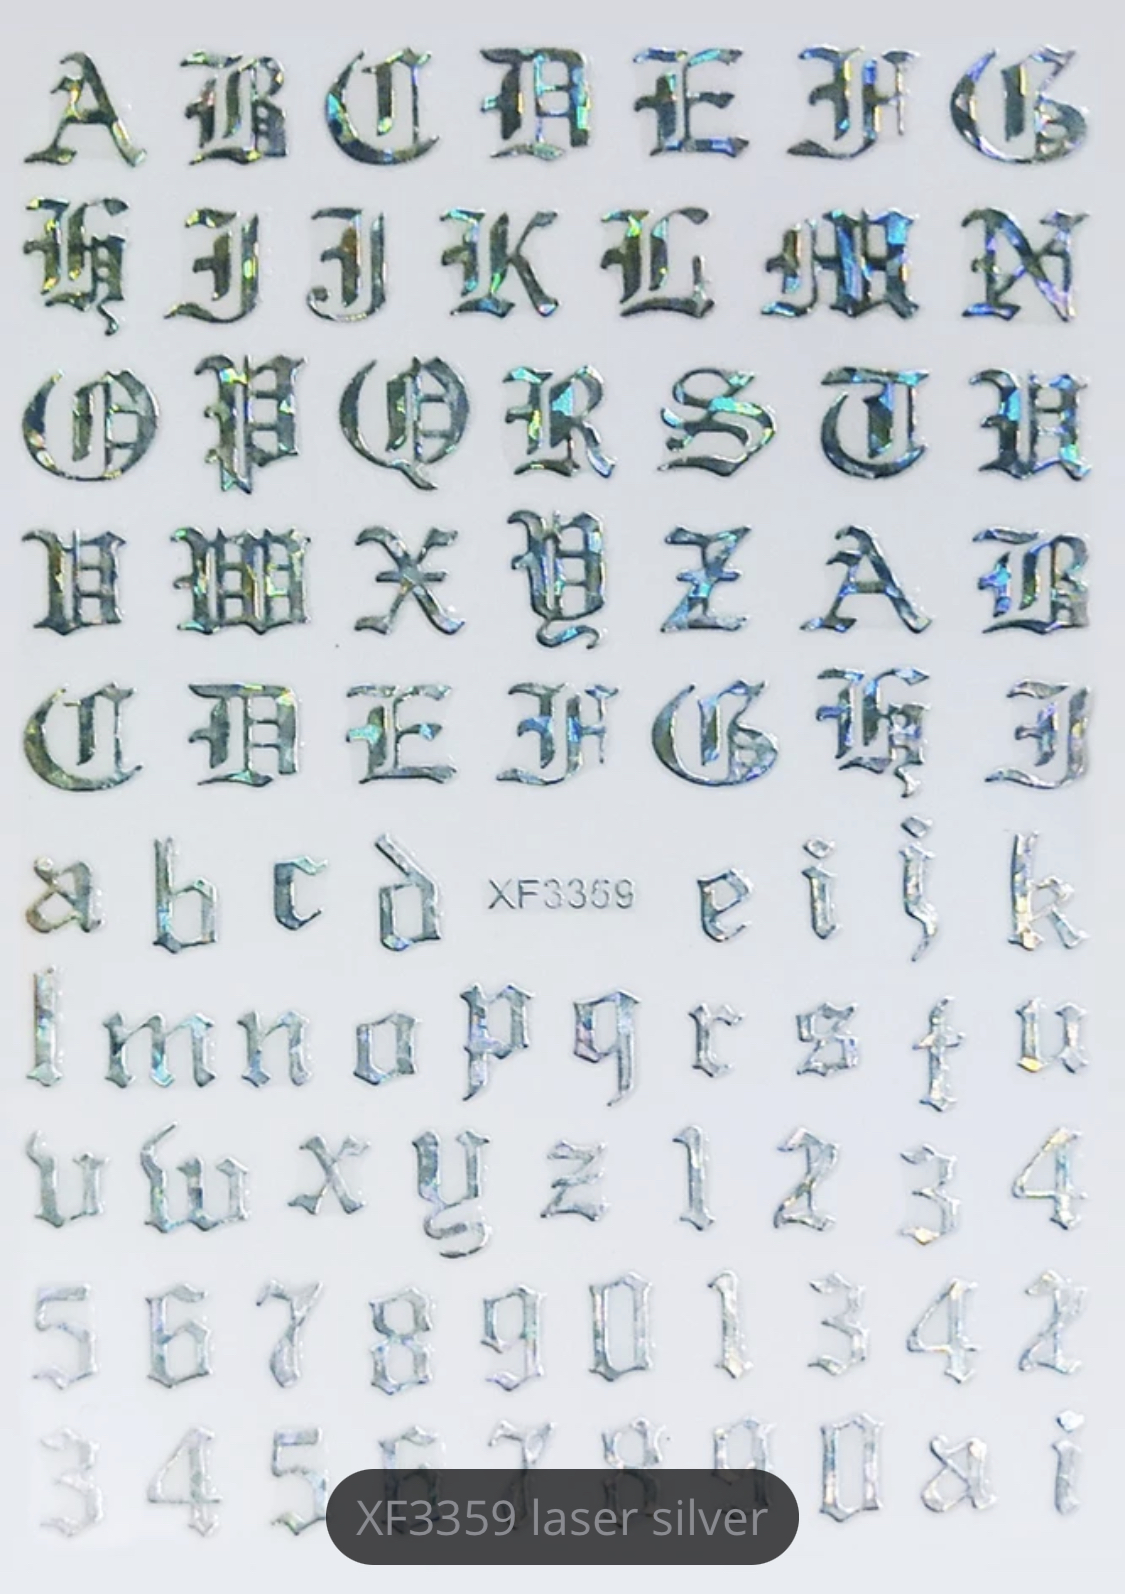 A B C D E F G
H I J K L M N
O P Q R S T U
V W X Y Z A B
C D E F G H I
a b c d XF3359 e i j k
l m n o p q r s t u
v w x y z 1 2 3 4
5 6 7 8 9 0 1 3 4 2
3 4 5 6 7 8 9 0 a i
XF3359 laser silver